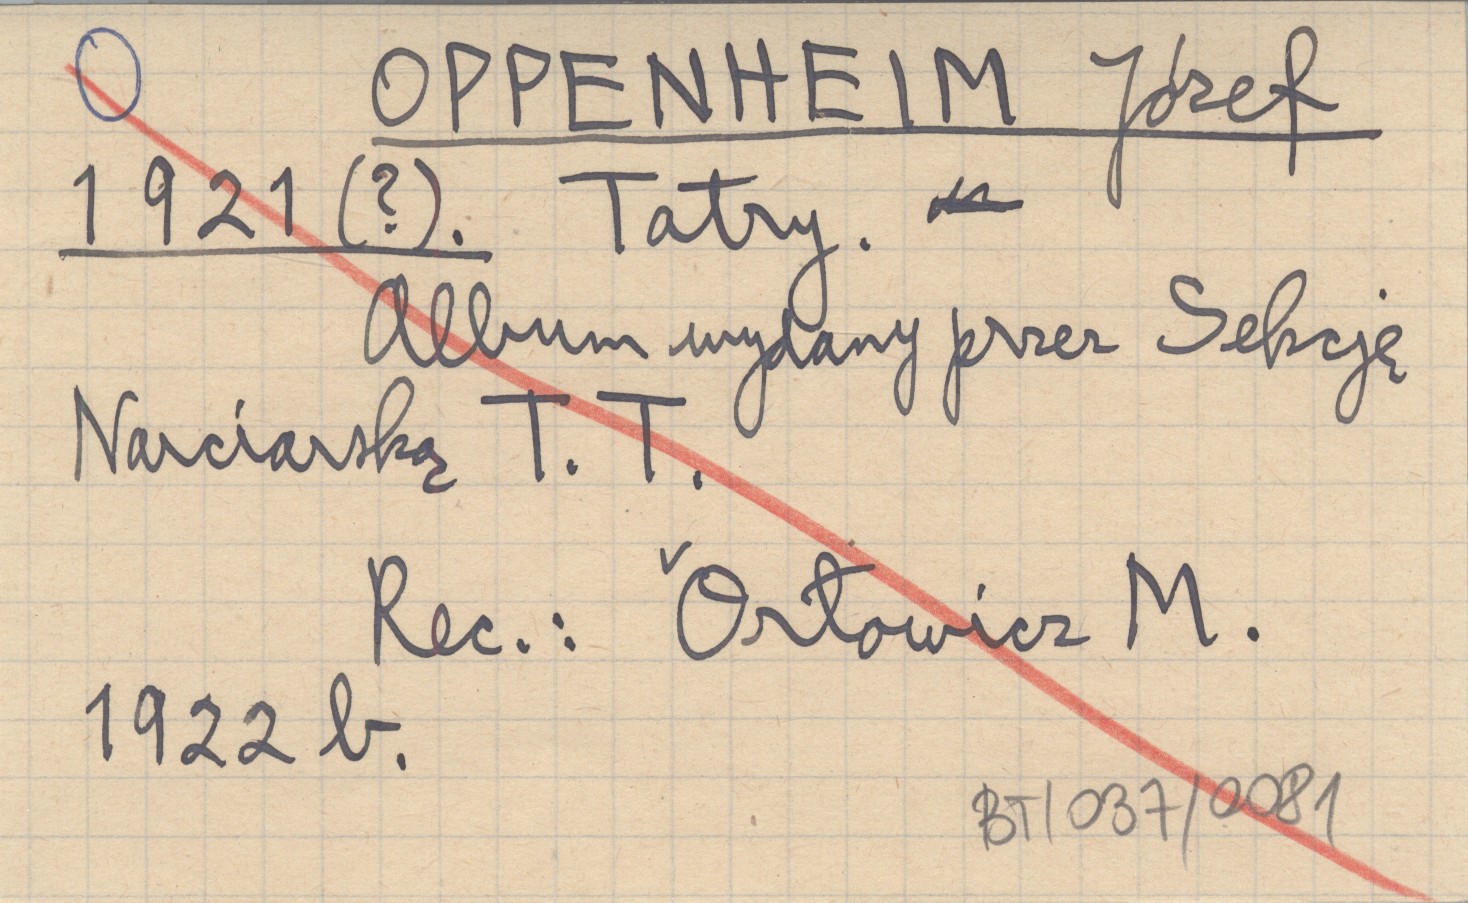 OPPENHEIM Józef
1921 (?). Tatry.
Album wydany przez Sekcję
Narciarską T. T.
Rec.: Orłowicz M.
1922 b.
BT/037/0081